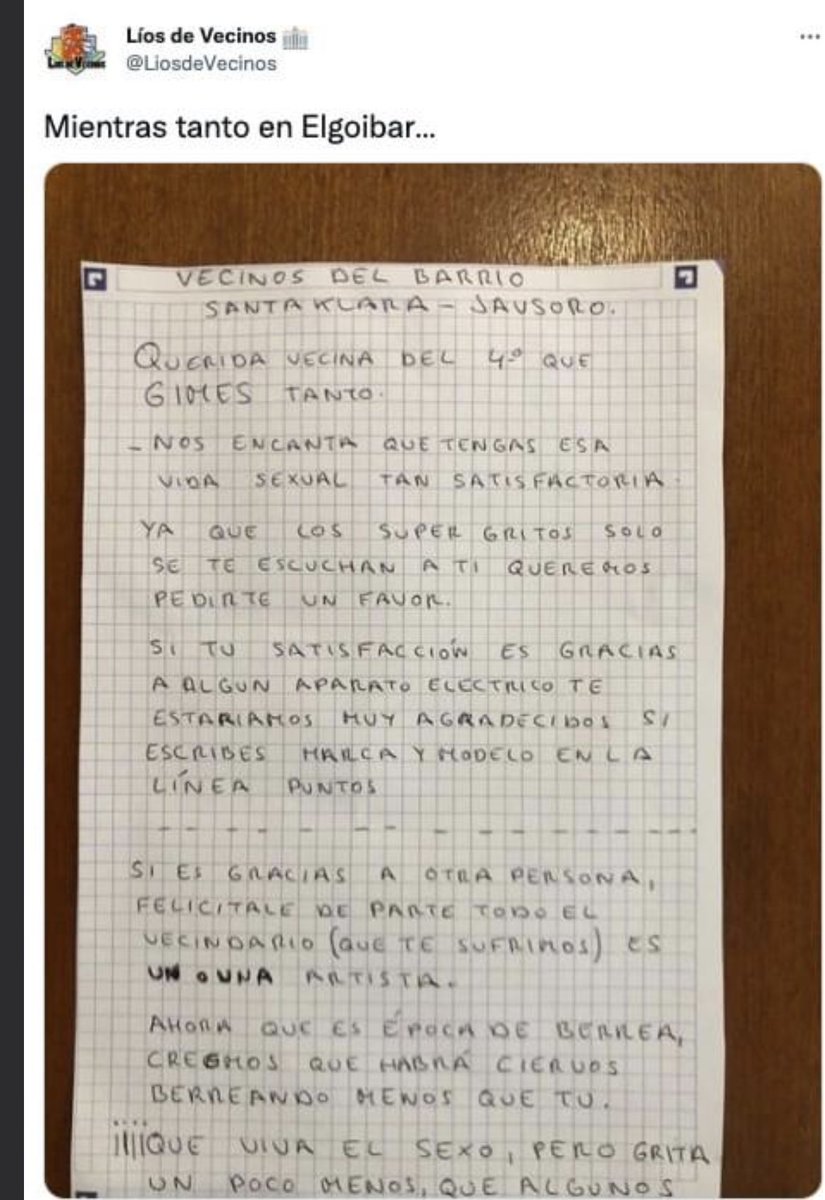 Líos de Vecinos
@LiosdeVecinos
Mientras tanto en Elgoibar...
VECINOS DEL BARRIO
SANTA KLARA - JAUSORO.
QUERIDA VECINA DEL 4º QUE
GIMES TANTO.
- NOS ENCANTA QUE TENGAS ESA
VIDA SEXUAL TAN SATISFACTORIA.
YA QUE LOS SUPER GRITOS SOLO
SE TE ESCUCHAN A TI QUEREMOS
PEDIRTE UN FAVOR.
SI TU SATISFACCIÓN ES GRACIAS
A ALGUN APARATO ELECTRICO TE
ESTARIAMOS MUY AGRADECIDOS SI
ESCRIBES MARCA Y MODELO EN LA
LÍNEA PUNTOS
- - - - - - - - - - - - -
SI ES GRACIAS A OTRA PERSONA,
FELICITALE DE PARTE TODO EL
VECINDARIO (QUE TE SUFRIMOS) ES
UN O UNA ARTISTA.
AHORA QUE ES ÉPOCA DE BERREA,
CREEMOS QUE HABRÁ CIERVOS
BERREANDO MENOS QUE TU.
¡¡¡¡QUE VIVA EL SEXO, PERO GRITA
UN POCO MENOS, QUE ALGUNOS